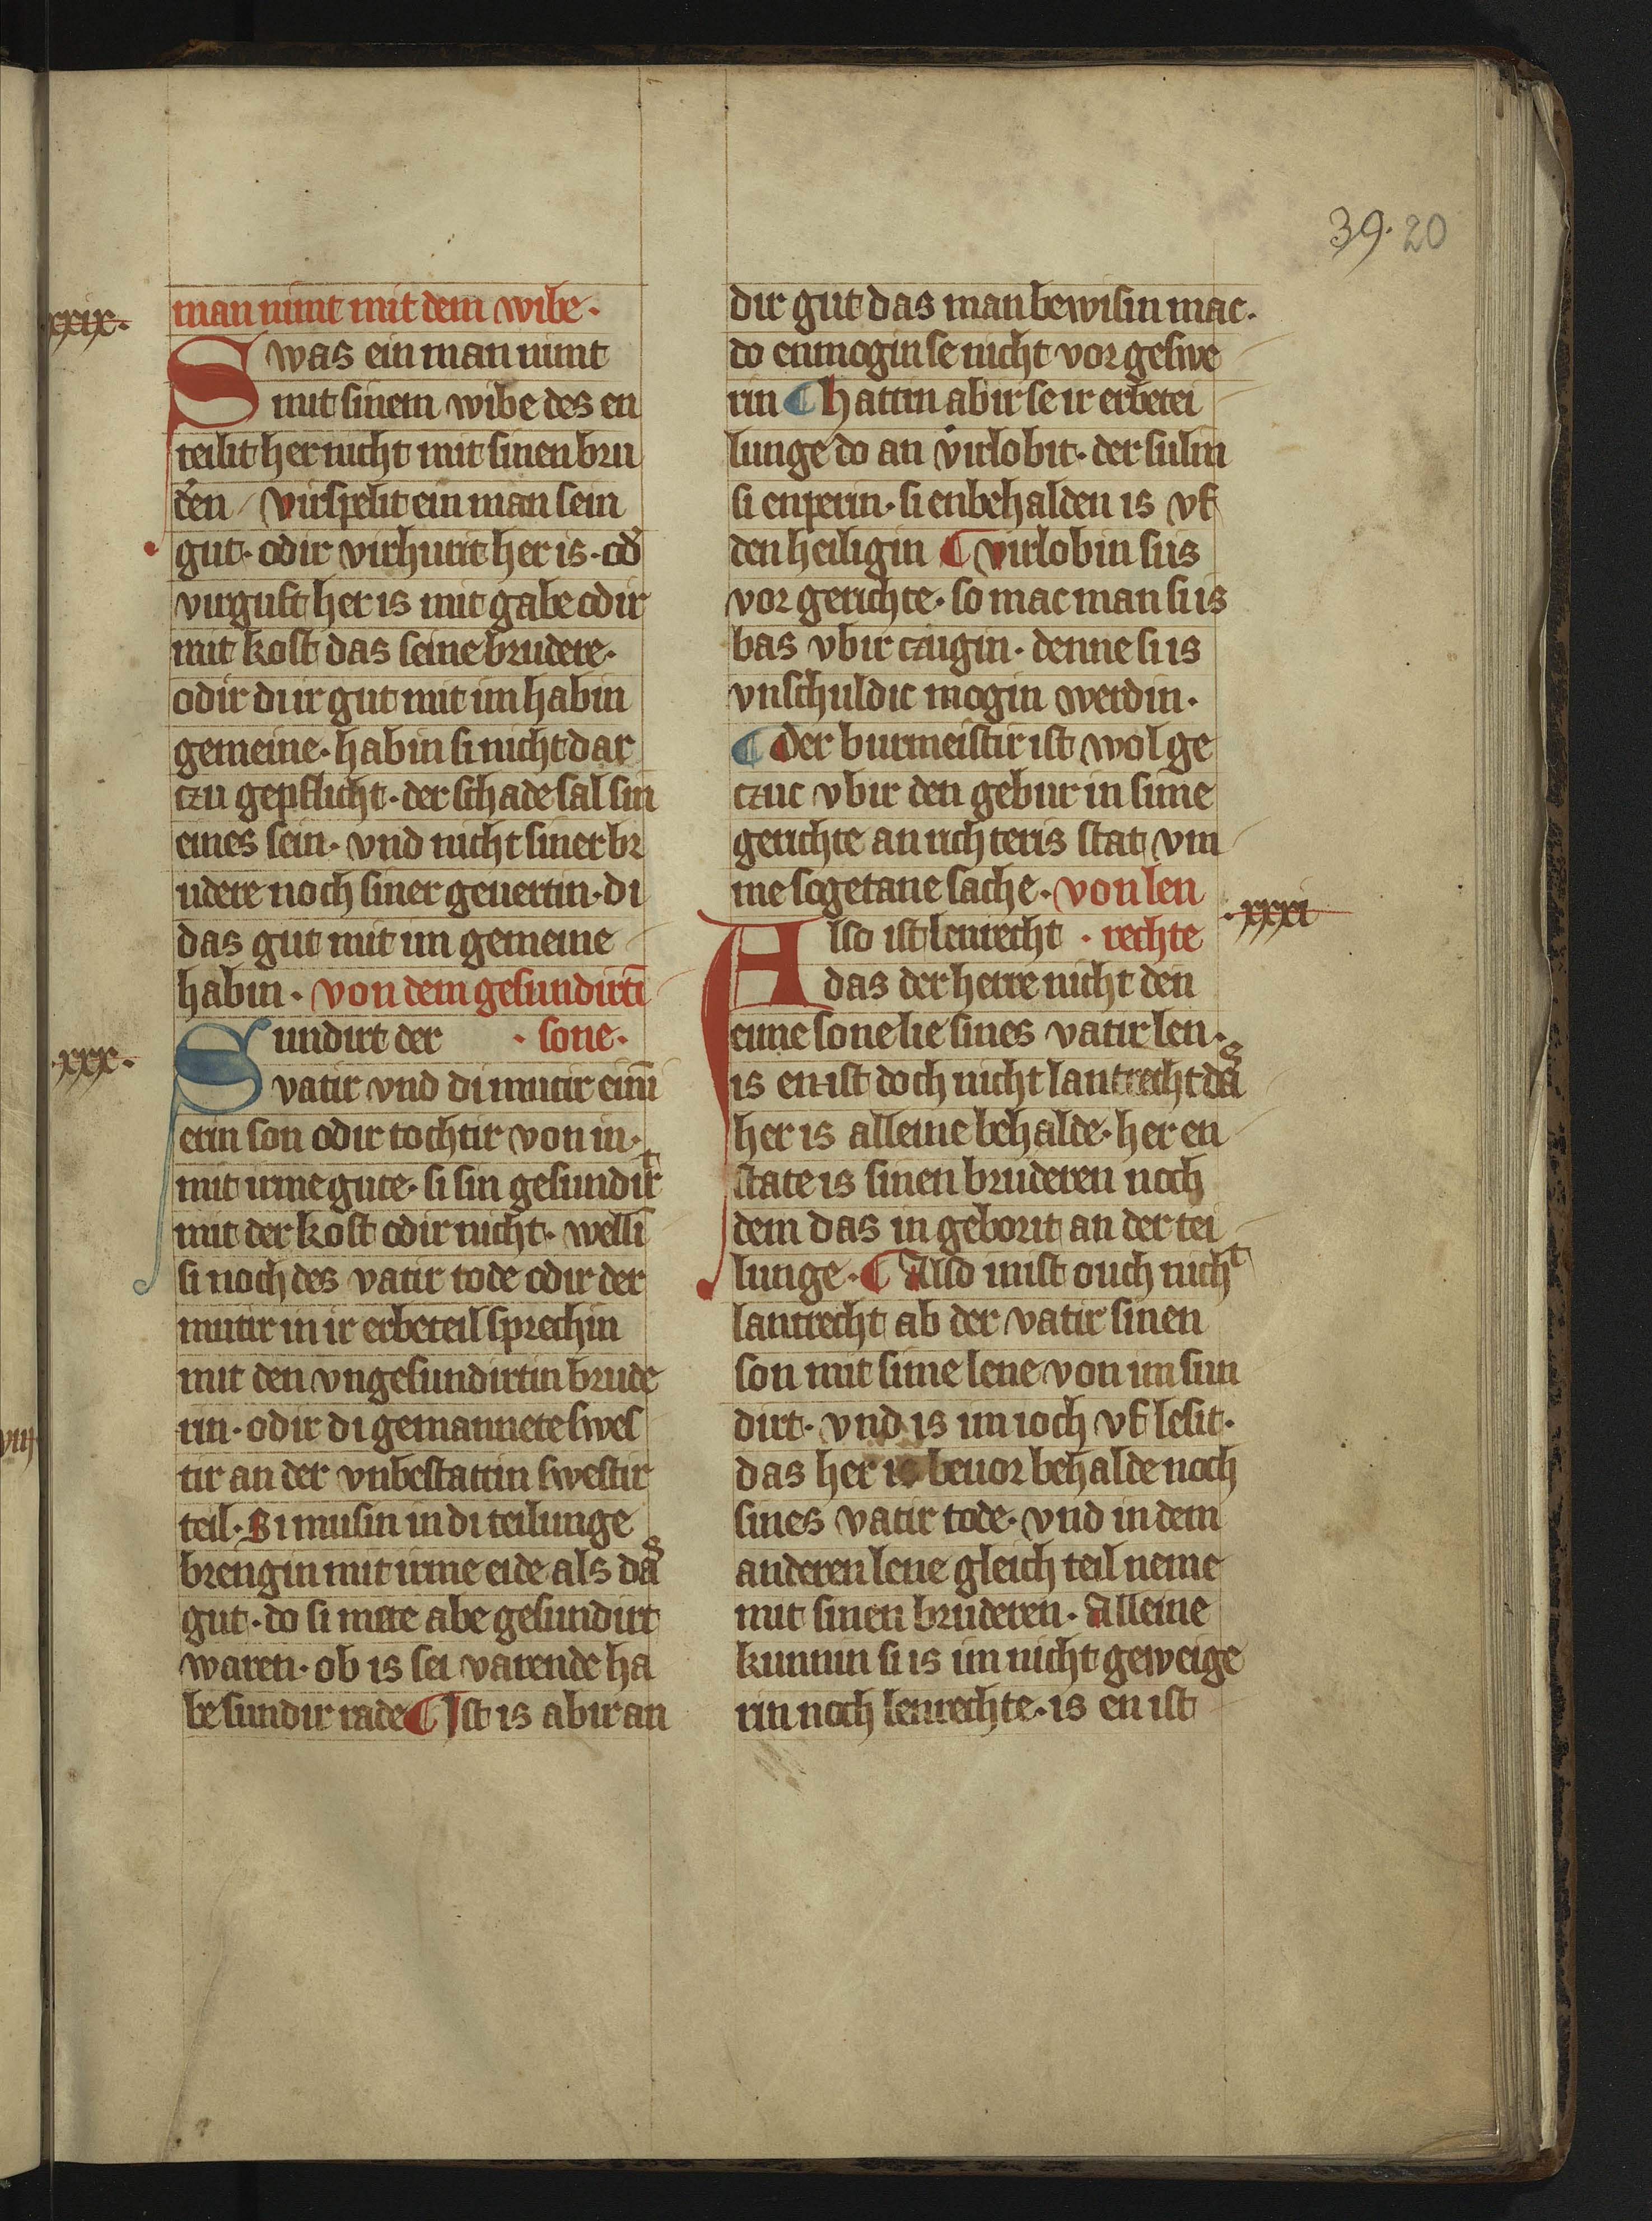 39. 20
xxix.
man nimt mit dem wibe.
Swas ein man nimt
mit sinem wibe des en
teilit her nicht mit sinen bru
deͬn / virspelit ein man sein
gut. odir virhurit her is. od̄
virguft her is mit gabe odir
mit kost das seine brudere.
odir diir gut mit im habin
gemeine. habin si nicht dar
czu gepflicht. der schade sal sin
eines sein. vnd nicht siner br
udere noch siner geuertin. di
das gut mit im gemeine
habin. von dem gesundirtī
.xxx.
Sundirt der . sone.
vatir vnd di mutir einē
erin son odir tochtir von in.
mit irme gute. si sin gesundirt
mit der kost odir nicht. wellī
si noch des vatir tode odir der
mutir in ir erbeteil sprechin
mit den vngesundirtin brude
rin. odir di gemannete swes
tir an der vnbestattin swestir
teil. Si musin in di teilunge
brengin mit irme eide als das
gut. do si mete abe gesundirt
waren. ob is sei varende ha
be sundir rade ¶ Ist is abir an
dir gut das man bewisin mac.
do enmogin se nicht vor geswe
rin ¶ hattin abir se ir erbetei
lunge do an virlobit. der sulin
si enperin. si enbehalden is vf
den heiligin ¶ virlobin siis
vor gerichte. so mac man si is
bas vbir czugin. denne si is
vnschuldic mogin werdin.
¶ der burmeistir ist wol ge
czuc vbir den gebur in sime
gerichte an richteris stat vm
me sogetane sache. von len
.xxxi
Also ist lenrecht . rechte
das der herre nicht den
eime sone lie sines vatir len.
is en ist doch nicht lantrecht das
her is alleine behalde. her en
state is sinen bruderen noch
dem das in geborit an der tei
lunge. ¶ Also nist ouch nicht
lantrecht ab der vatir sinen
son mit sime lene von im sun
dirt. vnd is im ioch vf lesit.
das her is beuor behalde noch
sines vatir tode. vnd in dem
anderen lene gleich teil neme
mit sinen bruderen. Alleine
kunnin si is im nicht geweige
rin noch lenrechte. is en ist